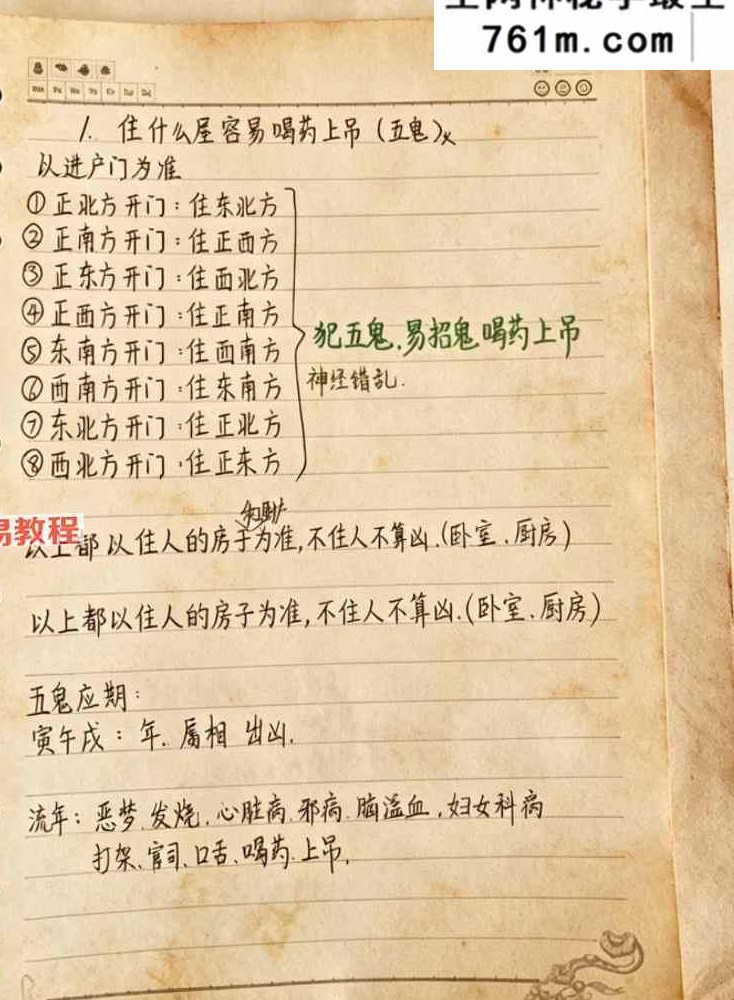 761m.com
1. 住什么屋容易喝药上吊（五鬼）
以进户门为准
①正北方开门：住东北方
②正南方开门：住正西方
③正东方开门：住西北方
④正西方开门：住正南方
⑤东南方开门：住西南方
⑥西南方开门：住东南方
⑦东北方开门：住正北方
⑧西北方开门：住正东方
犯五鬼.易招鬼喝药上吊
神经错乱.
易教程
以上都以住人的房子为准,不住人不算凶.(卧室.厨房)
以上都以住人的房子为准,不住人不算凶.(卧室.厨房)
五鬼应期：
寅午戌：年.属相 出凶.
流年：恶梦.发烧.心脏病.邪病.脑溢血,妇女科病
打架.官司.口舌.喝药.上吊.